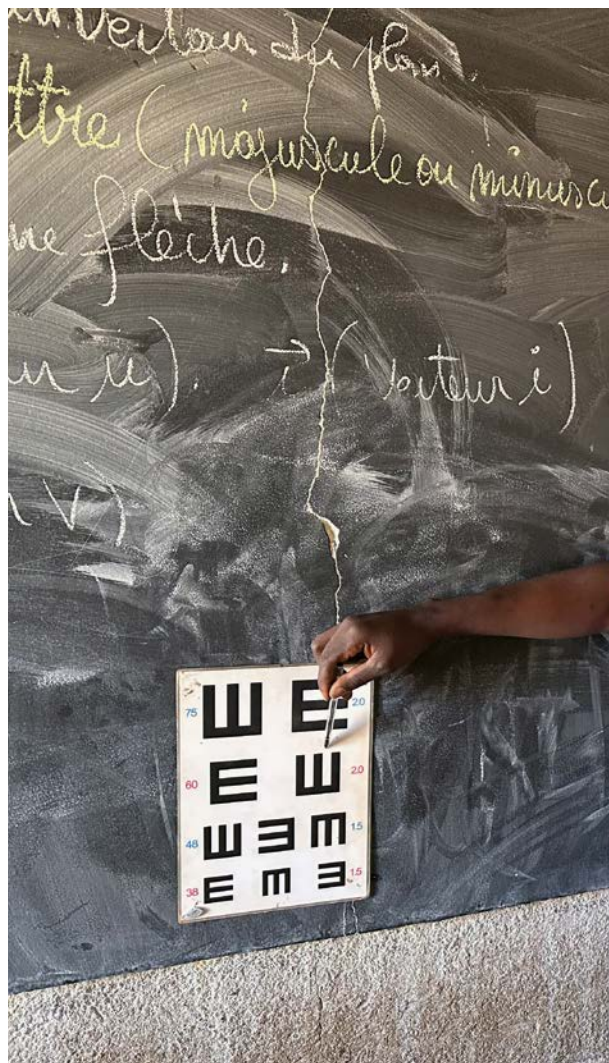 du plan.
ttre (majuscule ou minusc
ne flèche.
ur u). i (vecteur i)
v)
75 2.0
60 2.0
48 1.5
38 1.5